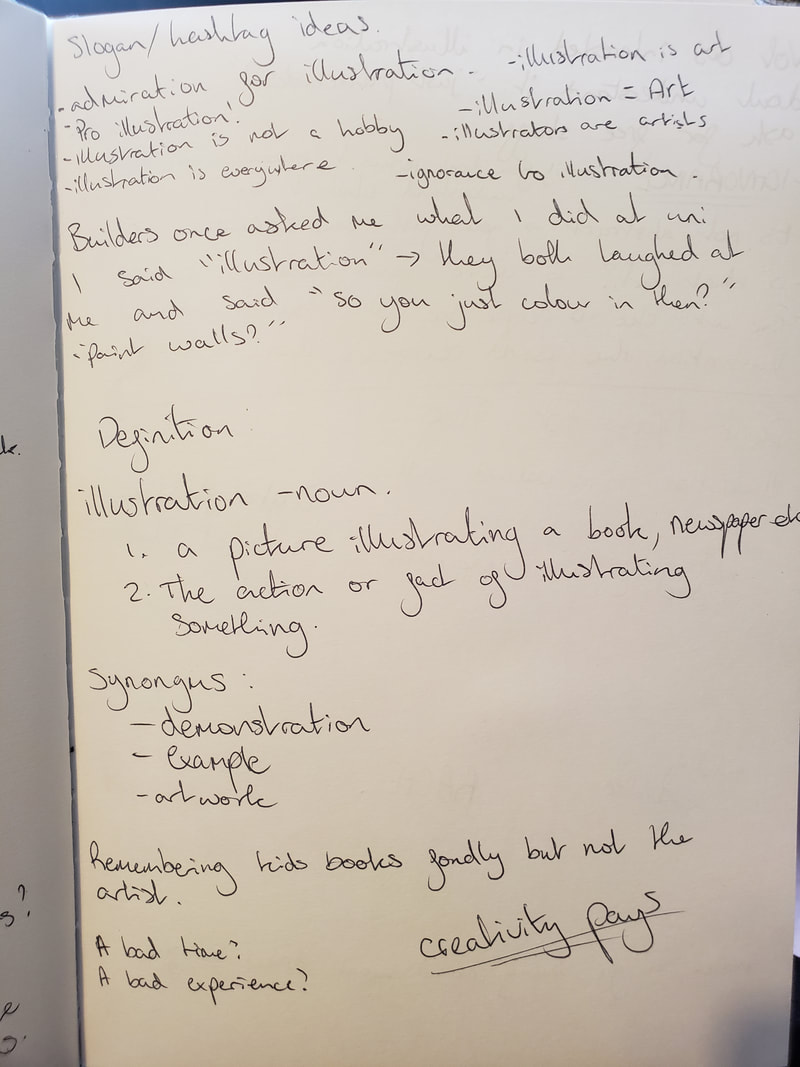 Slogan/hashtag ideas.
-admiration for illustration. -illustration is art
-Pro illustration! -illustration = Art
-illustration is not a hobby -illustrators are artists
-illustration is everywhere. -ignorance to illustration.
Builders once asked me what I did at uni
I said "illustration" → they both laughed at
me and said "so you just colour in then?"
"paint walls?"
Definition
illustration -noun.
1. a picture illustrating a book, newspaper etc
2. The action or fact of illustrating
something.
Synongus:
- demonstration
- example
- artwork
Remembering kids books fondly but not the
artist.
A bad time?
creativity pays
A bad experience?